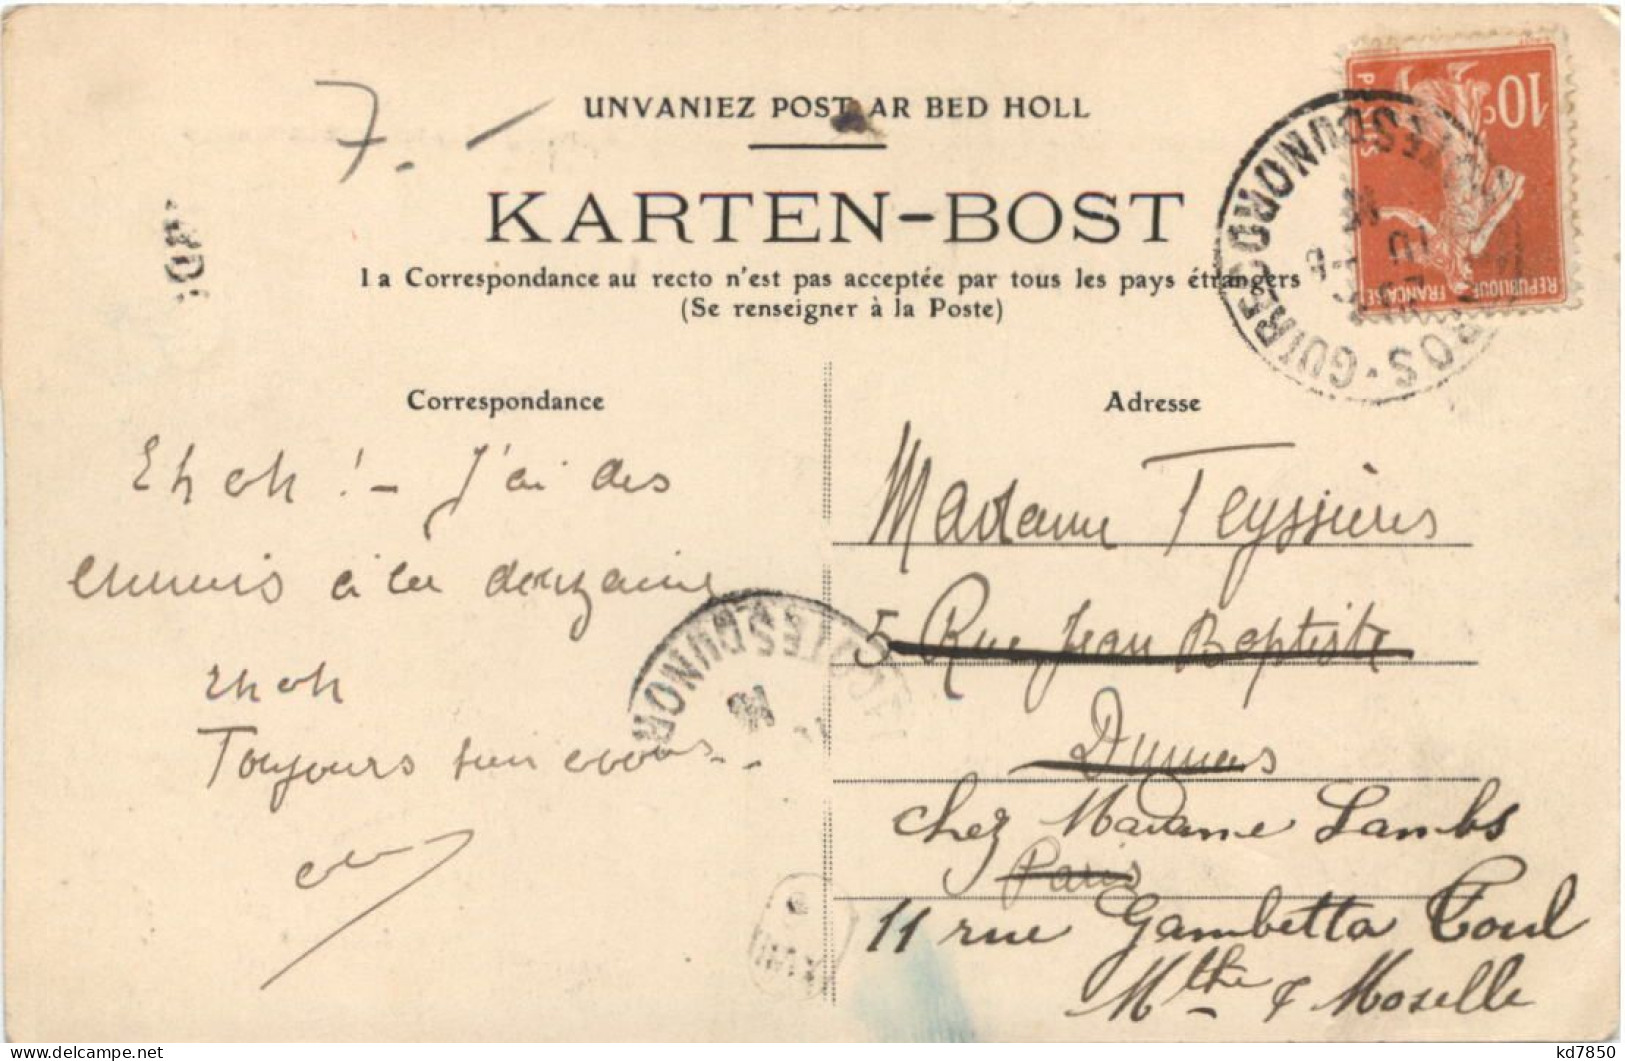 7. -
UNVANIEZ POST AR BED HOLL
KARTEN-BOST
La Correspondance au recto n'est pas acceptée par tous les pays étrangers
(Se renseigner à la Poste)
10c
POSTES
REPUBLIQUE FRANCAISE
PERROS-GUIREC COTES DU NORD
Correspondance
Adresse
Eh oh ! - J'ai des
ennuis à la douzaine
eh oh
Toujours
Madame Teyssières
5 Rue Jean Baptiste
Dumas
chez Madame Lambs
Paris
11 rue Gambetta Toul
Mthe & Moselle
COTES DU NORD
kd7850